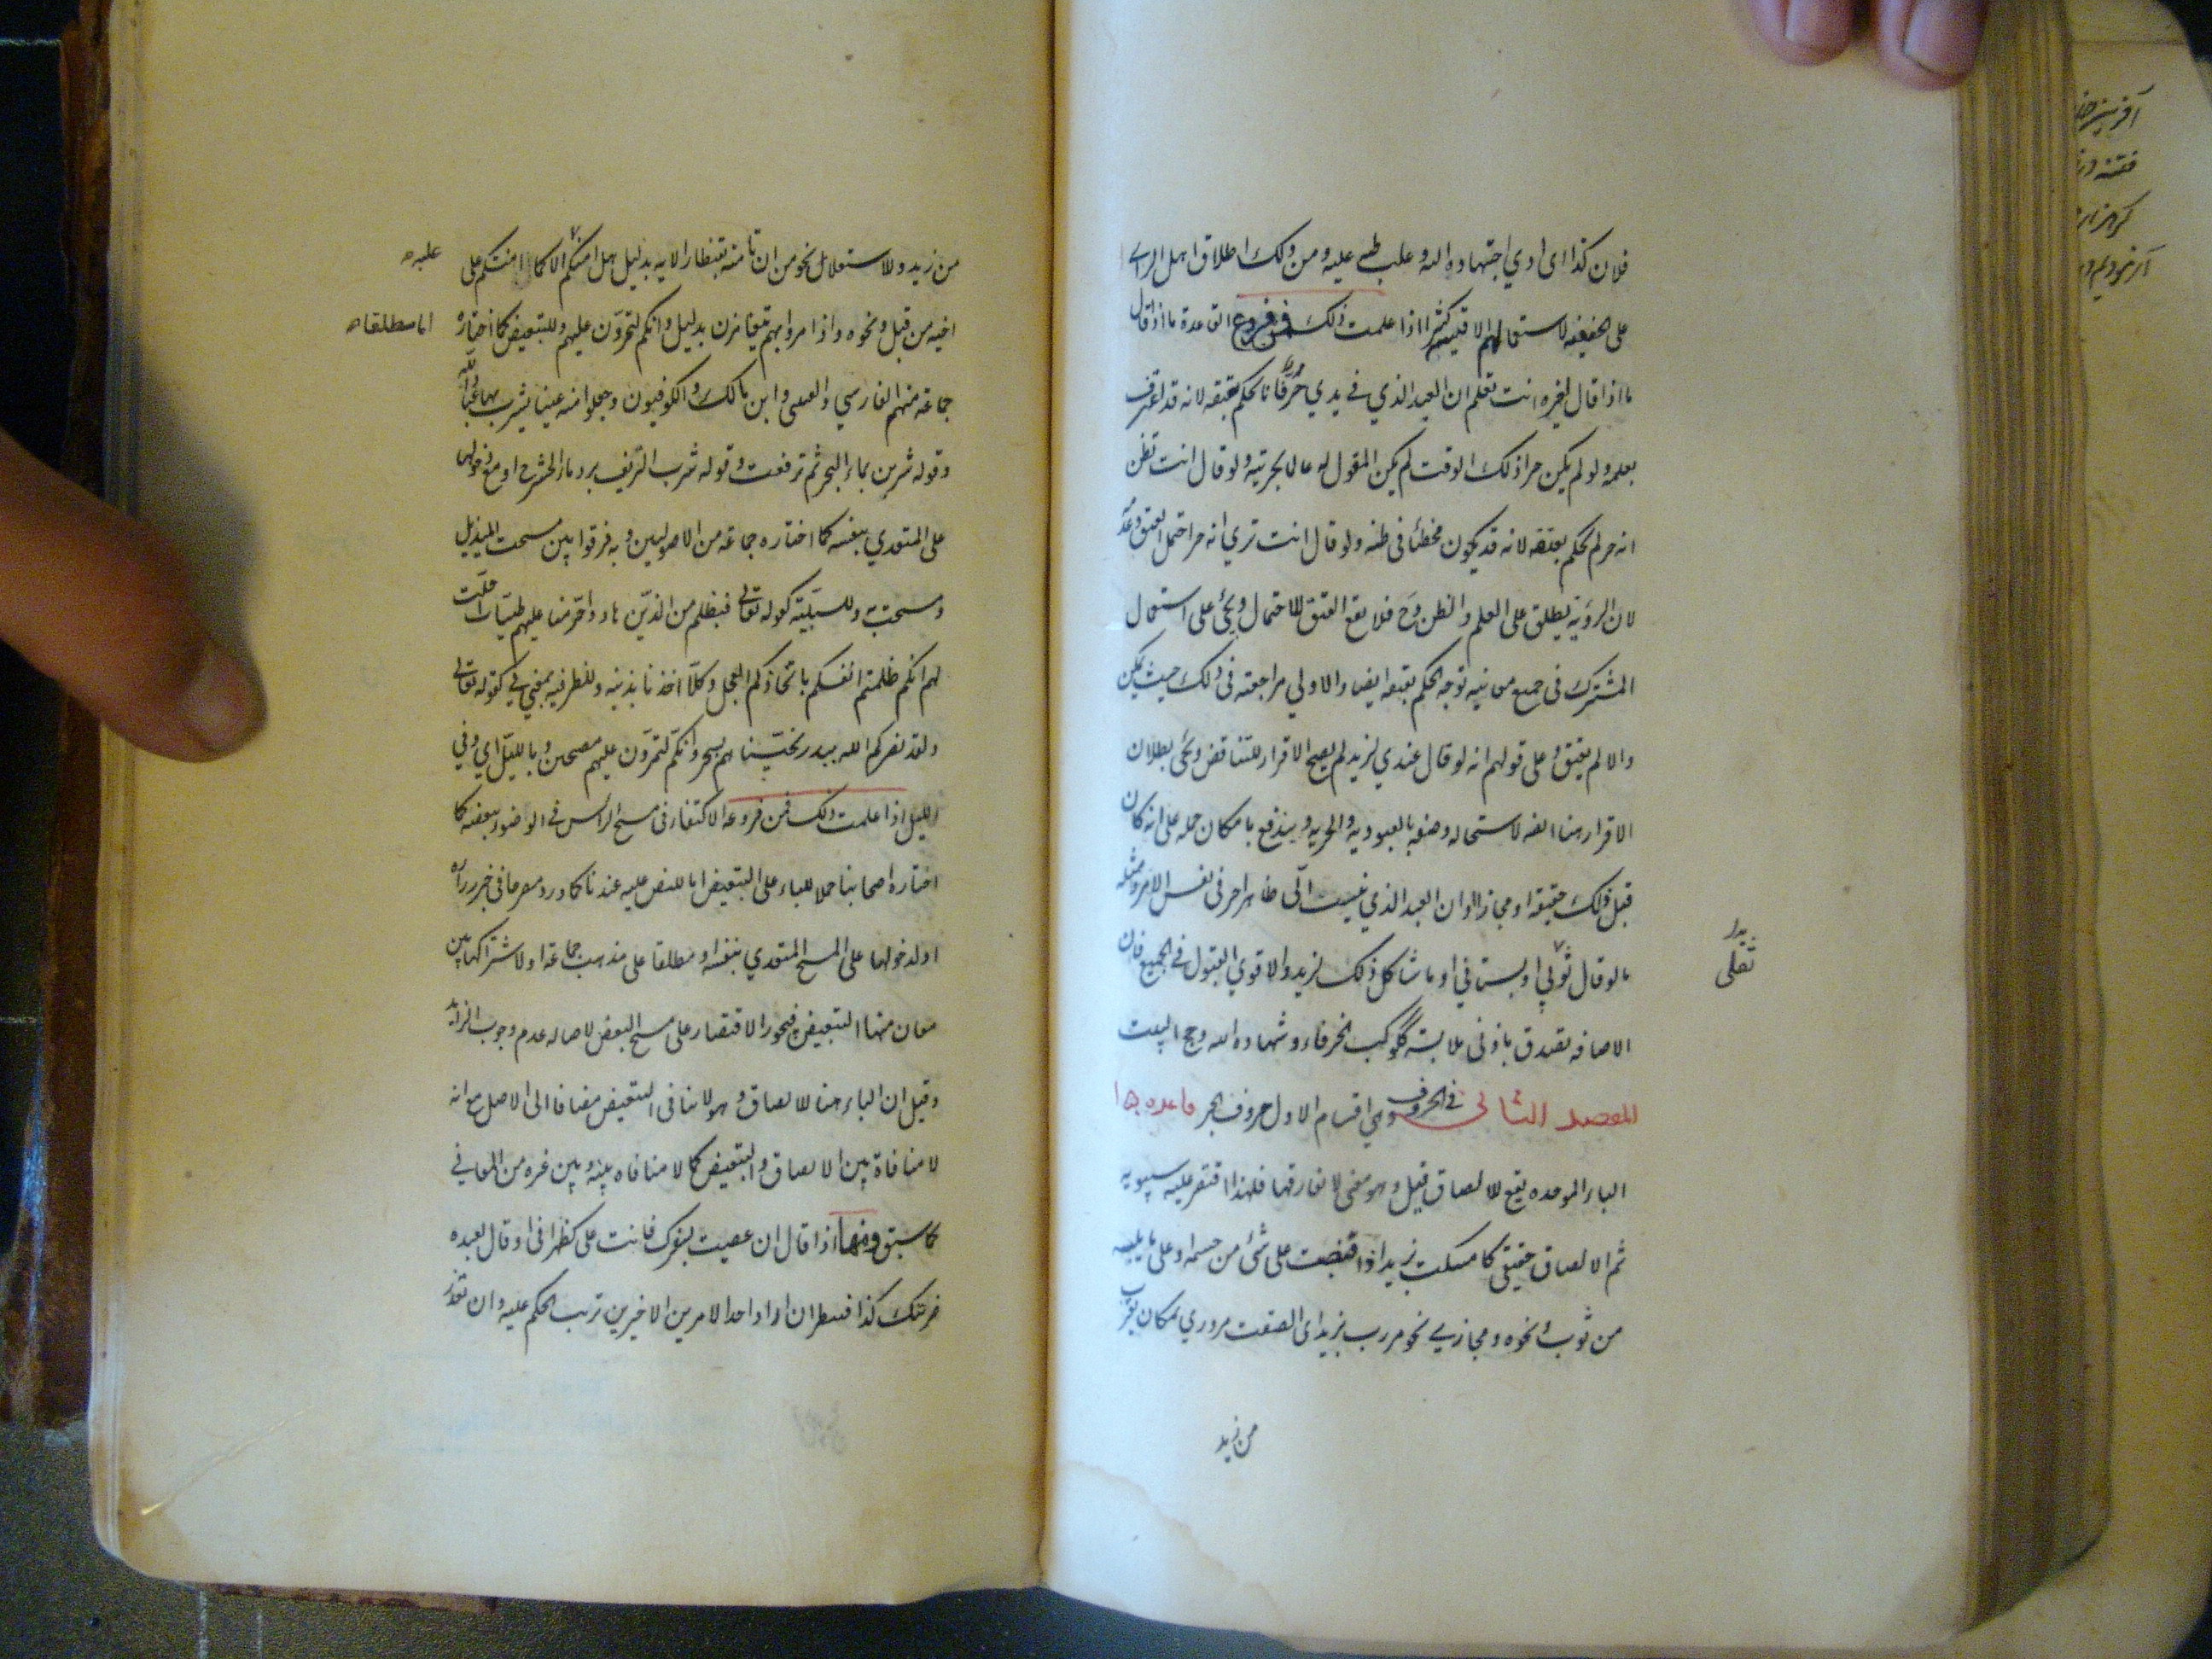 فلان كذا اى ادي اجتهاده اليه وغلب ظنه عليه ومن ذلك اطلاق اهل الراي
على الحقيقة لاستعمالهم الاقيسة كثيرا اذا علمت ذلك فمن فروع القاعدة ما اذا قال
ما اذا قال لغيره انت تعلم ان العبد الذي في يدي حر فانا نحكم بعتقه لانه قد اعترف
بعلمه ولو لم يكن حرا ذلك الوقت لم يكن المقول له عالما بحريته ولو قال انت تظن
انه حر لم نحكم بعتقه لانه قد يكون مخطئا في ظنه ولو قال انت تري انه حر احتمل العتق وعدمه
لان الرؤية يطلق على العلم والظن وح فلا يقع العتق للاحتمال ويجئ على استعمال
المشترك في جميع معانيه توجه الحكم بعتقه ايضا والاولي مراجعته في ذلك حيث يمكن
والا لم يعتق وعلى قولهم انه لو قال عندي لزيد لم يصح الاقرار للتناقض ويجئ بطلان
الاقرار هنا لاستحاله وصفه بالعبوديه والحريه ويندفع بامكان حمله على انه كان
قبل ذلك حقيقة او مجازا او ان العبد الذي نسبت الىّ ظاهرا حر في نفس الامر ومثله
ما لو قال ثوبي او بستاني او ما شاكل ذلك لزيد والاقوي القبول في الجميع فان
الاضافه تصدق بادنى ملابسة ككوكب الخرقاء وشهادة الله وحج البيت
المقصد الثاني في الحروف وهي اقسام الاول حروف الجر قاعدة
الباء الموحده يقع للالصاق قيل وهو معنى لا يفارقها فلهذا اقتصر عليه سيبويه
ثم الالصاق حقيقي كامسكت بزيد اذا قبضت على شئ من جسمه او على ما يلبسه
من ثوب ونحوه ومجازي نحو مررت بزيد اى الصقت مروري بمكان يقرب
من زيد
من زيد وللاستعلا نحو من ان تامنه بقنطار الايه بدليل هل امنكم الا كما امنتكم على
عليه
اخيه من قبل ونحوه واذا مروا بهم يتغامزون بدليل وانكم لتمرون عليهم وللتبعيض كما اختاره
اما مطلقا
جماعة منهم الفارسي والقتبى وابن مالك والكوفيون وجعلوا منه عينا يشرب بها عباد الله
وقوله شربن بماء البحر ثم ترفعت وقوله شرب النزيف ببرد ماء الحشرج او مع دخولها
على المتعدي بنفسه كما اختاره جماعة من الاصوليين وبه فرقوا بين مسحت المنديل
ومسحت به وللسببية كقوله تعالى فبظلم من الذين هادوا حرمنا عليهم طيبات احلت
لهم انكم ظلمتم انفسكم باتخاذكم العجل وكلا اخذنا بذنبه وللظرفيه بمعنى في كقوله تعالى
ولقد نصركم الله ببدر نجيناهم بسحر وانكم لتمرون عليهم مصبحين وبالليل اي وفي
الليل اذا علمت ذلك فمن فروعه الاكتفاء في مسح الراس في الوضوء ببعضه كما
اختاره اصحابنا حملا للباء على التبعيض اما للنص عليه عندنا كما ورد مصرحا في خبر زرارة
او لدخولها على المسح المتعدي بنفسه او مطلقا على مذهب جماعة او لاشتراكها بين
معان منها التبعيض فيجوز الاقتصار على مسح البعض لاصالة عدم وجوب الزايد
وقيل ان الباء هنا للالصاق وهو لا ينافي التبعيض مضافا الى الاصل مع انه
لا منافاة بين الالصاق والتبعيض كما لا منافاه بينه وبين غيره من المعاني
كما سبق ومنها اذا قال ان عصيت بسفرك فانت على كظهر امى او قال لعبده
ضربتك كذا فينظر ان اراد احد الامرين الاخيرين ترتب الحكم عليه وان تعذر